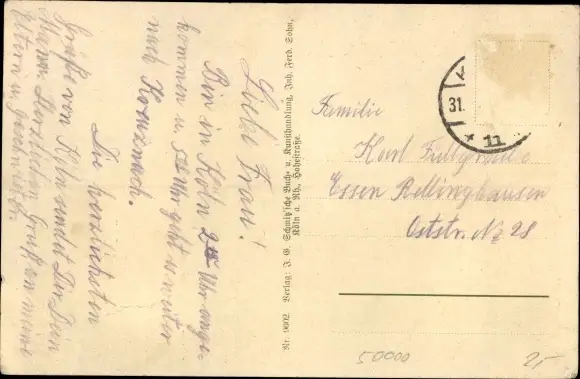 Liebe Frau!
Bin in Köln 2 Uhr ange-
kommen u. Uhr geht es weiter
nach
Die herzlichsten
Grüße von Köln sendet Dir Dein
Mann. Herzlichen Gruß an meine
Eltern u. Geschwister.
Nr. 9602. Verlag: J. G. Schmitz'sche Buch- u. Kunsthandlung, Inh. Ferd. Sohn,
Köln a. Rh., Hohestraße.
31.
* 11
Familie
Karl
Essen Rellinghausen
Oststr. No 28
50000
25,-